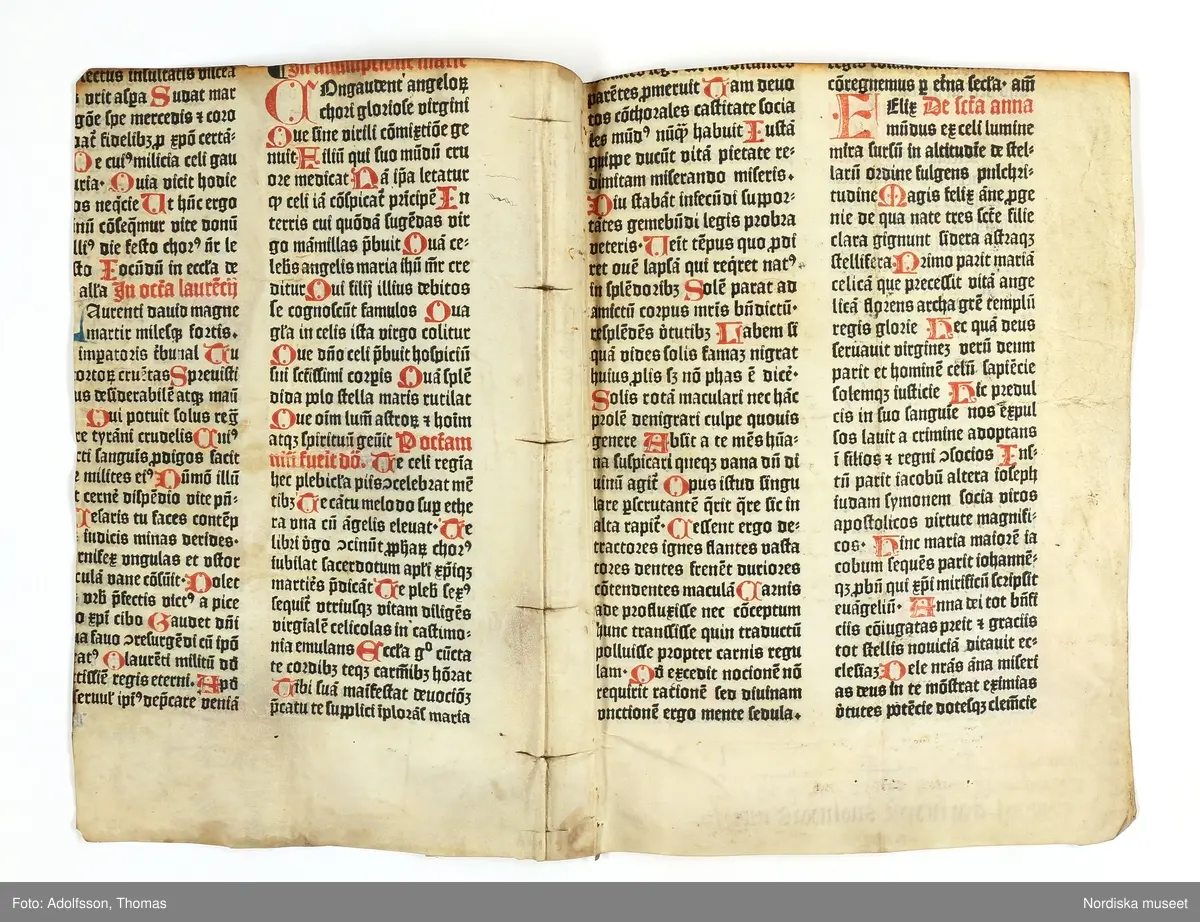 lectus insultatis vncea
vrit aspa Sudat mar
gōe spe mercedis ⁊ coro
pat᷑ fidelibꝫ ꝑ xpō certā-
De cuiꝰ milicia celi gau
uria. Quia vicit hodie
os neq̄cie Ut hūc ergo
nū cōseq̄mur vite donū
lliꝰ die festo chorꝰ nr̄ le
sto Iocūdū in eccl̓a de
all̓a In octa̓ laurēcij
Aurenti dauid magne
martir milesqꝫ fortis.
imꝑatoris tr̄bunal Tu
tortoꝝ cruētas Spreuisti
us desiderabile atqꝫ manū
Qui potuit solus reg̃
re tyrāni crudelis Cuiꝰ
cti sanguis ꝓdigos facit
e milites eiꝰ Qūmō illū
t cerne᷑ dispēdio vite pn̄-
Cesaris tu fasces contēp
iudicis minas derides.
rnifex vngulas et vstor
culā vane cōsūit. Dolet
vrb̓ p̄fectis victꝰ a pisce
o xp̄i cibo Gaudet dn̄i
ua fauo ꝯresurgēdi cū ip̄o
tatꝰ O laurēti militū dō
ctissiē regis eterni. Apō
seruuſ ipiꝰ dep̄care veniā
In assumptione marie
COngaudent angeloꝝ
chori gloriose virgini
Que sine virili cōmixtiōe ge
nuit Filiū qui suo mūdū cru
ore medicat Nā ip̄a letatur
qꝫ celi iā cōspicat᷑ prīcipē In
terris cui quōdā sugēdas vir
go māmillas p̄buit Quā ce-
leb̓s angelis maria ih̄u mr̄ cre
ditur Qui filij illius debitos
se cognoscūt famulos Qua
gl̓a in celis ista virgo colitur
Que dn̄o celi p̄buit hospiciū
sui sctīssimi corꝑis Quā splē
dida polo stella maris rutilat
Que oīm lum̄ astroꝝ ⁊ hoīm
atqꝫ spirituū genuit P octam
nīū fuerit dō. Te celi regīa
hec plebicl̓a piis ꝯcelebrat mē
tibꝫ Te cātu melodo suꝑ ethe
ra vna cū āgelis eleuat. Te
libri v̓go ꝯcinūt ꝓphaꝝ chorꝰ
iubilat sacerdotum apl̓i xp̄iqꝫ
martiēs p̄dicāt Te pleb̓ sexꝰ
sequit᷑ vtriusqꝫ vitam diligēs
virgīalē celicolas in castimo-
nia emulans Eccl̓a gͦ cūcta
te cordibꝫ teqꝫ carmībꝫ hōrat
Tibi suā maīfestat deuocioꝫ
p̄catu te supplici īplorās maria
parētes ꝓmeruit Tam deuo
tos cōthorales castitate socia
les mūdꝰ nūqꝫ habuit Iusta
quippe ducūt vitā pietate re-
dimitam miserando miseris.
Diu stabāt infecūdi suppor-
tātes gemebūdi legis probra
veteris. Ueīt tēpus quo ꝓdi
ret ouē lapsā qui req̄ret natꝰ
in splēdoribꝫ Solē parat ad
amictū corpus mr̄is bn̄dictū
resplēdēs v̓tutibꝫ Labem si
quā vides solis famaꝫ nigrat
huius ꝓlis sꝫ nō phas ē dicē.
Solis rota maculari nec hāc
prolē denigrari culpe quouis
genere Absit a te mēs hūa-
na suspicari queqꝫ vana dū di
uinū agit᷑ Opus istud singu
lare ꝑscrutantē q̄rit q̄re sic in
alta rapit᷑. Cessent ergo de-
tractores ignes flantes vasta
tores dentes frenēt duriores
cōtendentes maculā Carnis
ade profluxisse nec cōceptum
hunc transisse quin traductū
polluisse propter carnis regu
lam. Qd̓ excedit nocionē nō
requirit rationē sed diuinam
vnctionē ergo mente sedula.
cōregnemus ꝑ et̓na secl̓a. am̄
FElix De sctā anna
mūdus ex celi lumine
mira sursū in altitudīe de stel-
larū ordine fulgens pulchri-
tudine Magis felix āne ꝓge
nie de qua nate tres scte̓ filie
clara gignunt sidera astraqꝫ
stellifera Primo parit mariā
celicā que precessit vitā ange
licā florens archa gr̄e templū
regis glorie Hec quā deus
seruauit virgineꝫ verū deum
parit et hominē celū sapiēcie
solemqꝫ iusticie Hic predul
cis in suo sanguīe nos expul
sos lauit a crimine adoptans
ī filios ⁊ regni ꝯsocios Ius-
tū parit iacobū altera ioseph
iudam symonem socia viros
apostolicos virtute magnifi-
cos. Hinc maria maiorē ia
cobum sequēs parit iohannē-
qꝫ pb̄ū qui xp̄i mirificū scripsit
euāgeliū. Anna dei tot bn̄fi
ciis cōiugatas preit ⁊ graciis
tot stellis nouiciā ditauit ec-
clesiaꝫ Pele nr̄ās āna miseri
as deus in te mōstrat eximias
v̓tutes potēcie dotesqꝫ clemēcie
Foto: Adolfsson, Thomas
Nordiska museet